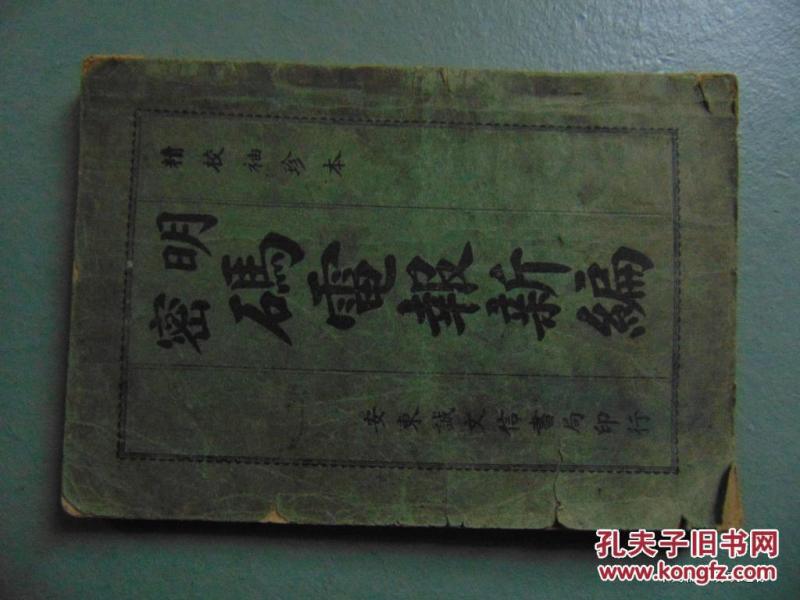 精校袖珍本
明密碼電報新編
安東誠文信書局印行
孔夫子旧书网
www.kongfz.com